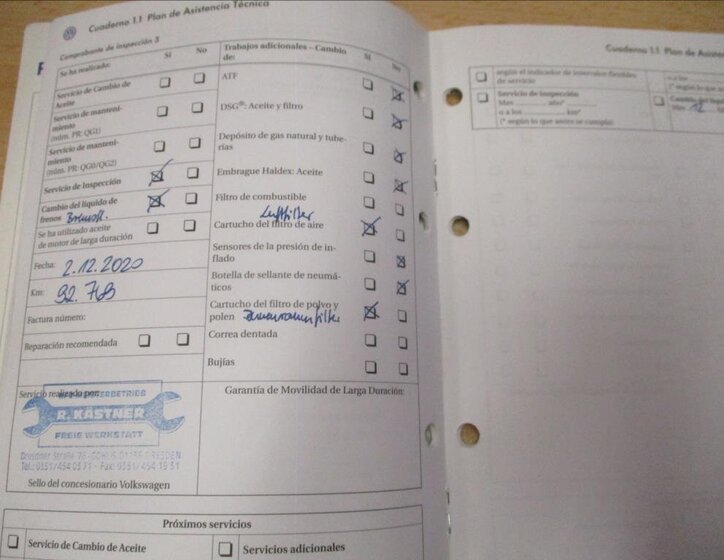 Cuaderno 1.1 Plan de Asistencia Técnica
Comprobante de inspección 3
Se ha realizado:
Sí No
Servicio de Cambio de
Aceite
Servicio de manteni-
miento
(núm. PR: QG1)
Servicio de manteni-
miento
(núm. PR: QG0/QG2)
Servicio de Inspección
Cambio del líquido de
frenos
Se ha utilizado aceite
de motor de larga duración
Fecha: 2.12.2020
Km: 92.763
Factura número:
Reparación recomendada
Trabajos adicionales – Cambio
de:
Sí No
ATF
DSG®: Aceite y filtro
Depósito de gas natural y tube-
rías
Embrague Haldex: Aceite
Filtro de combustible
Luftfilter
Cartucho del filtro de aire
Sensores de la presión de in-
flado
Botella de sellante de neumá-
ticos
Cartucho del filtro de polvo y
polen
Correa dentada
Bujías
Servicio realizado por:
R. KÄSTNER
FREIE WERKSTATT
Sello del concesionario Volkswagen
Garantía de Movilidad de Larga Duración:
Próximos servicios
Servicio de Cambio de Aceite
Servicios adicionales
Cuaderno 1.1 Plan de Asisten
según el indicador de intervalos flexibles
de servicio
Servicio de inspección
(* según lo que antes se cumpla)